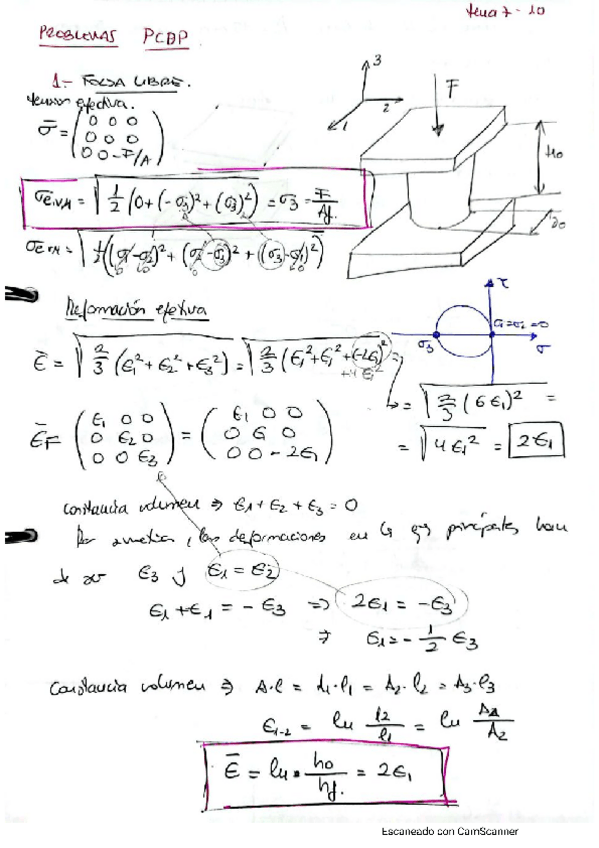 tema 7 - 10
PROBLEMAS PCDP
1.- FORJA LIBRE.
tension efectiva.
σ̄ = (0 0 0
0 0 0
0 0 -F/A)
3
2
1
F
H₀
D₀
σe,VM = √(1/2 (0 + (-σ3)² + (σ3)²)) = σ3 = F/Af.
σe VM = √(1/2((σ1-σ2)² + (σ2-σ3)² + (σ3-σ1)²))
Deformación efectiva
τ
σ1=σ2=0
σ3
σ
ε̄ = √(2/3 (ε1² + ε2² + ε3²)) = √(2/3 (ε1² + ε1² + (-2ε1)²)) =
+4ε1²
= √(2/3 (6ε1)²) =
= √(4ε1²) = 2ε1
ε̄F (ε1 0 0
0 ε2 0
0 0 ε3) = (ε1 0 0
0 ε 0
0 0 -2ε1)
constancia volumen ⇒ ε1 + ε2 + ε3 = 0
Por simetria, las deformaciones en los ejes principales han
de ser ε3 y ε1 = ε2
ε1 + ε1 = - ε3 ⇒ 2ε1 = -ε3
⇒ ε1 = - 1/2 ε3
Constancia volumen ⇒ A·l = A1·l1 = A2·l2 = A3·l3
ε1-2 = ln l2/l1 = ln A1/A2
ε̄ = ln · h0/hf. = 2ε1
Escaneado con CamScanner